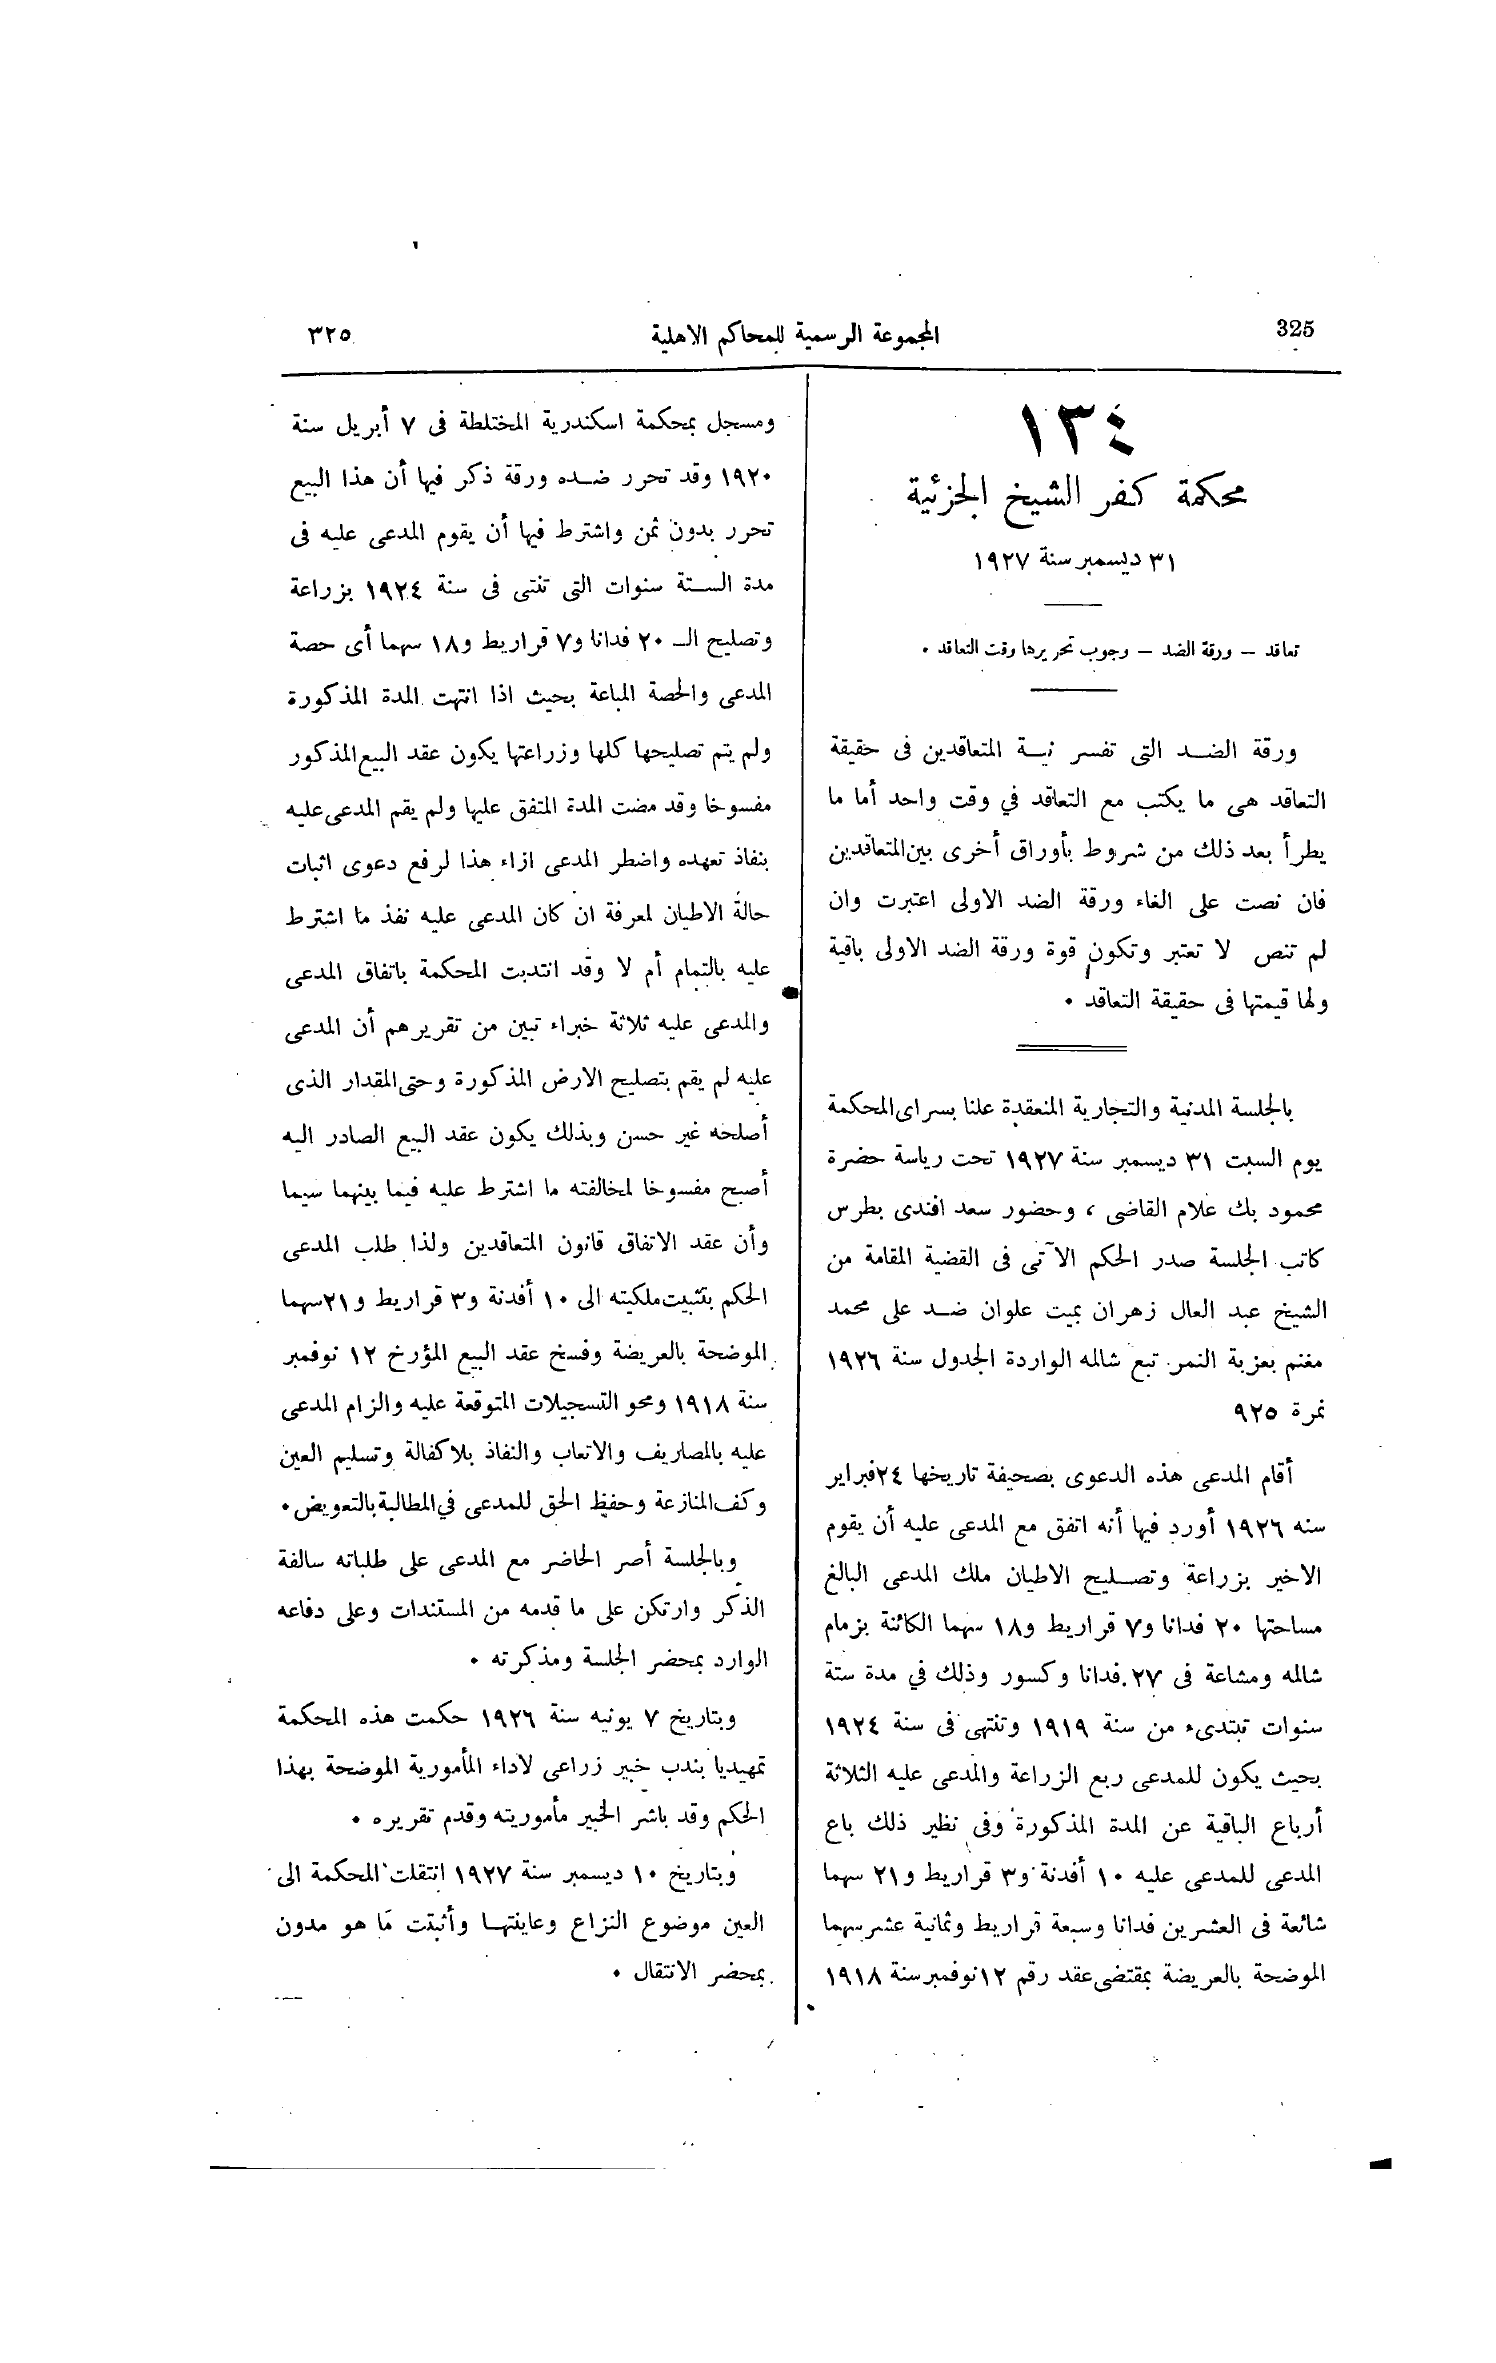 325
المجموعة الرسمية للمحاكم الاهلية
٣٢٥
١٣٤
محكمة كفر الشيخ الجزئية
٣١ ديسمبر سنة ١٩٢٧
تعاقد – ورقة الضد – وجوب تحريرها وقت التعاقد .
ورقة الضد التى تفسر نية المتعاقدين فى حقيقة
التعاقد هى ما يكتب مع التعاقد في وقت واحد أما ما
يطرأ بعد ذلك من شروط بأوراق أخرى بين المتعاقدين
فان نصت على الغاء ورقة الضد الاولى اعتبرت وان
لم تنص لا تعتبر وتكون قوة ورقة الضد الاولى باقية
ولها قيمتها فى حقيقة التعاقد .
بالجلسة المدنية والتجارية المنعقدة علنا بسراى المحكمة
يوم السبت ٣١ ديسمبر سنة ١٩٢٧ تحت رياسة حضرة
محمود بك علام القاضى ، وحضور سعد افندى بطرس
كاتب الجلسة صدر الحكم الآتى فى القضية المقامة من
الشيخ عبد العال زهران بميت علوان ضد على محمد
مغنم بعزبة النمر تبع شاله الواردة الجدول سنة ١٩٢٦
نمرة ٩٢٥
أقام المدعى هذه الدعوى بصحيفة تاريخها ٢٤ فبراير
سنه ١٩٢٦ أورد فيها أنه اتفق مع المدعى عليه أن يقوم
الاخير بزراعة وتصليح الاطيان ملك المدعى البالغ
مساحتها ٢٠ فدانا و٧ قراريط و١٨ سهما الكائنة بزمام
شاله ومشاعة فى ٢٧ فدانا وكسور وذلك في مدة ستة
سنوات تبتدىء من سنة ١٩١٩ وتنتهى فى سنة ١٩٢٤
بحيث يكون للمدعى ربع الزراعة والمدعى عليه الثلاثة
أرباع الباقية عن المدة المذكورة وفى نظير ذلك باع
المدعى للمدعى عليه ١٠ أفدنة و٣ قراريط و٢١ سهما
شائعة فى العشرين فدانا وسبعة قراريط وثمانية عشر سهما
الموضحة بالعريضة بمقتضى عقد رقم ١٢ نوفمبر سنة ١٩١٨
ومسجل بمحكمة اسكندرية المختلطة فى ٧ أبريل سنة
١٩٢٠ وقد تحرر ضده ورقة ذكر فيها أن هذا البيع
تحرر بدون ثمن واشترط فيها أن يقوم المدعى عليه فى
مدة الستة سنوات التى تنتى فى سنة ١٩٢٤ بزراعة
وتصليح الـ ٢٠ فدانا و٧ قراريط و١٨ سهما أى حصة
المدعى والحصة المباعة بحيث اذا انتهت المدة المذكورة
ولم يتم تصليحها كلها وزراعتها يكون عقد البيع المذكور
مفسوخا وقد مضت المدة المتفق عليها ولم يقم المدعى عليه
بنفاذ تعهده واضطر المدعى ازاء هذا لرفع دعوى اثبات
حالة الاطيان لمعرفة ان كان المدعى عليه نفذ ما اشترط
عليه بالتمام أم لا وقد انتدبت المحكمة باتفاق المدعى
والمدعى عليه ثلاثة خبراء تبين من تقريرهم أن المدعى
عليه لم يقم بتصليح الارض المذكورة وحتى المقدار الذى
أصلحه غير حسن وبذلك يكون عقد البيع الصادر اليه
أصبح مفسوخا لمخالفته ما اشترط عليه فيما بينهما سيما
وأن عقد الاتفاق قانون المتعاقدين ولذا طلب المدعى
الحكم بتثبيت ملكيته الى ١٠ أفدنة و٣ قراريط و٢١ سهما
الموضحة بالعريضة وفسخ عقد البيع المؤرخ ١٢ نوفمبر
سنة ١٩١٨ ومحو التسجيلات المتوقعة عليه والزام المدعى
عليه بالمصاريف والاتعاب والنفاذ بلا كفالة وتسليم العين
وكف المنازعة وحفظ الحق للمدعى في المطالبة بالتعويض .
وبالجلسة أصر الحاضر مع المدعى على طلباته سالفة
الذكر وارتكن على ما قدمه من المستندات وعلى دفاعه
الوارد بمحضر الجلسة ومذكرته .
وبتاريخ ٧ يونيه سنة ١٩٢٦ حكمت هذه المحكمة
تمهيديا بندب خبير زراعى لاداء المأمورية الموضحة بهذا
الحكم وقد باشر الخبير مأموريته وقدم تقريره .
وبتاريخ ١٠ ديسمبر سنة ١٩٢٧ انتقلت المحكمة الى
العين موضوع النزاع وعاينتها وأثبتت ما هو مدون
بمحضر الانتقال .